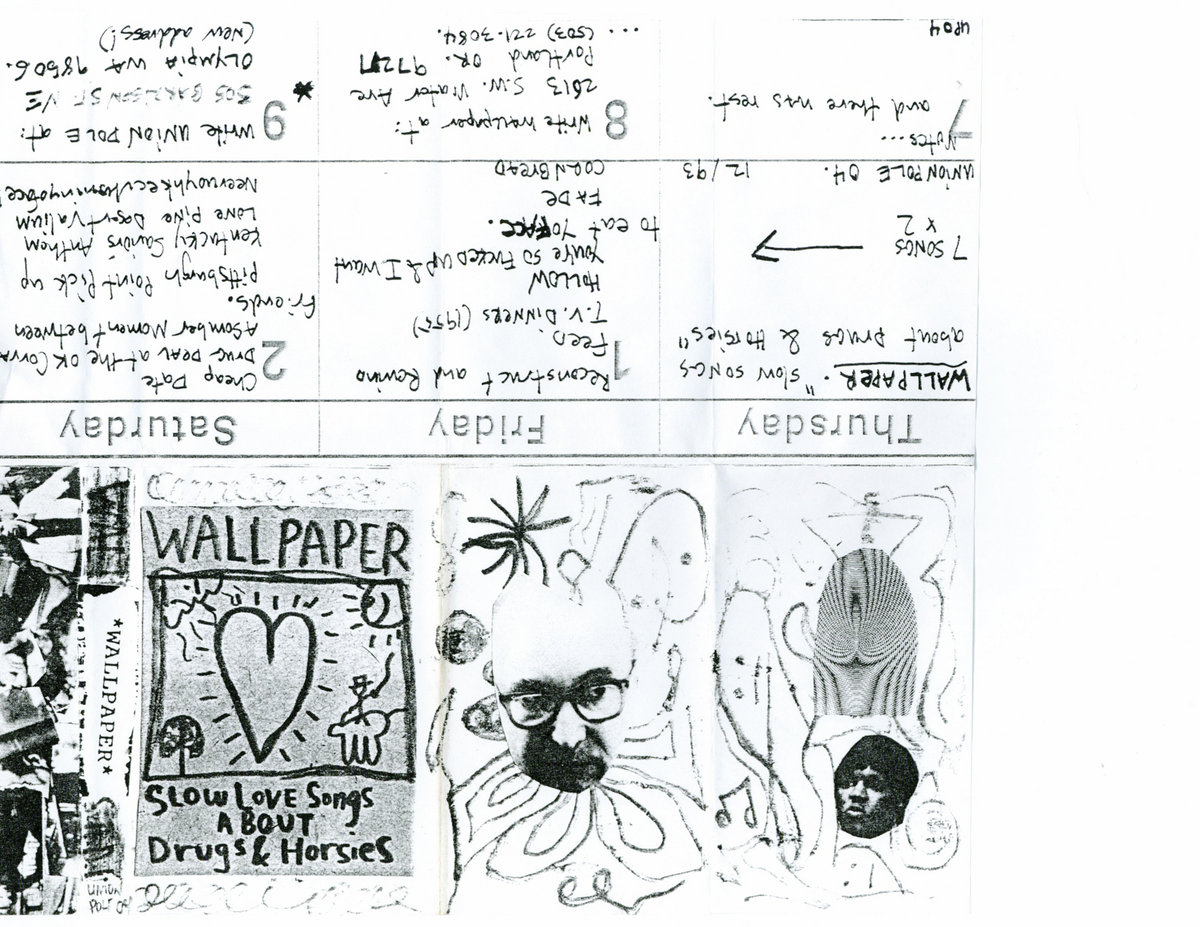 WALLPAPER
SLOW LOVE Songs
ABOUT
Drugs & Horsies
★WALLPAPER★
UNION
POLE 04
Thursday
WALLPAPER. "slow songs
about Drugs & Horsies"
7 SONGS
x 2
UNION POLE 04. 12/93
Friday
1
Reconstruct and Rewind
FEED
T.V. DINNERS (1955)
HOLLOW
You're so FUCKED UP & I want
to eat YOFACE.
FADE
CORNBREAD
Saturday
2
Cheap Date
Drug Deal at the OK Corra
A Somber Moment between
Friends.
Pittsburgh Point Pick up
Kentucky Saviors Anthem
Lone Pine Desert Valium
7
Notes...
and there was rest.
UP04
8
Write Wallpaper at:
2613 S.W. Water Ave
Portland OR. 97217
(503) 221-3084. ...
9
Write UNION POLE at:
ST NE
OLYMPIA WA 98506.
(New address!)